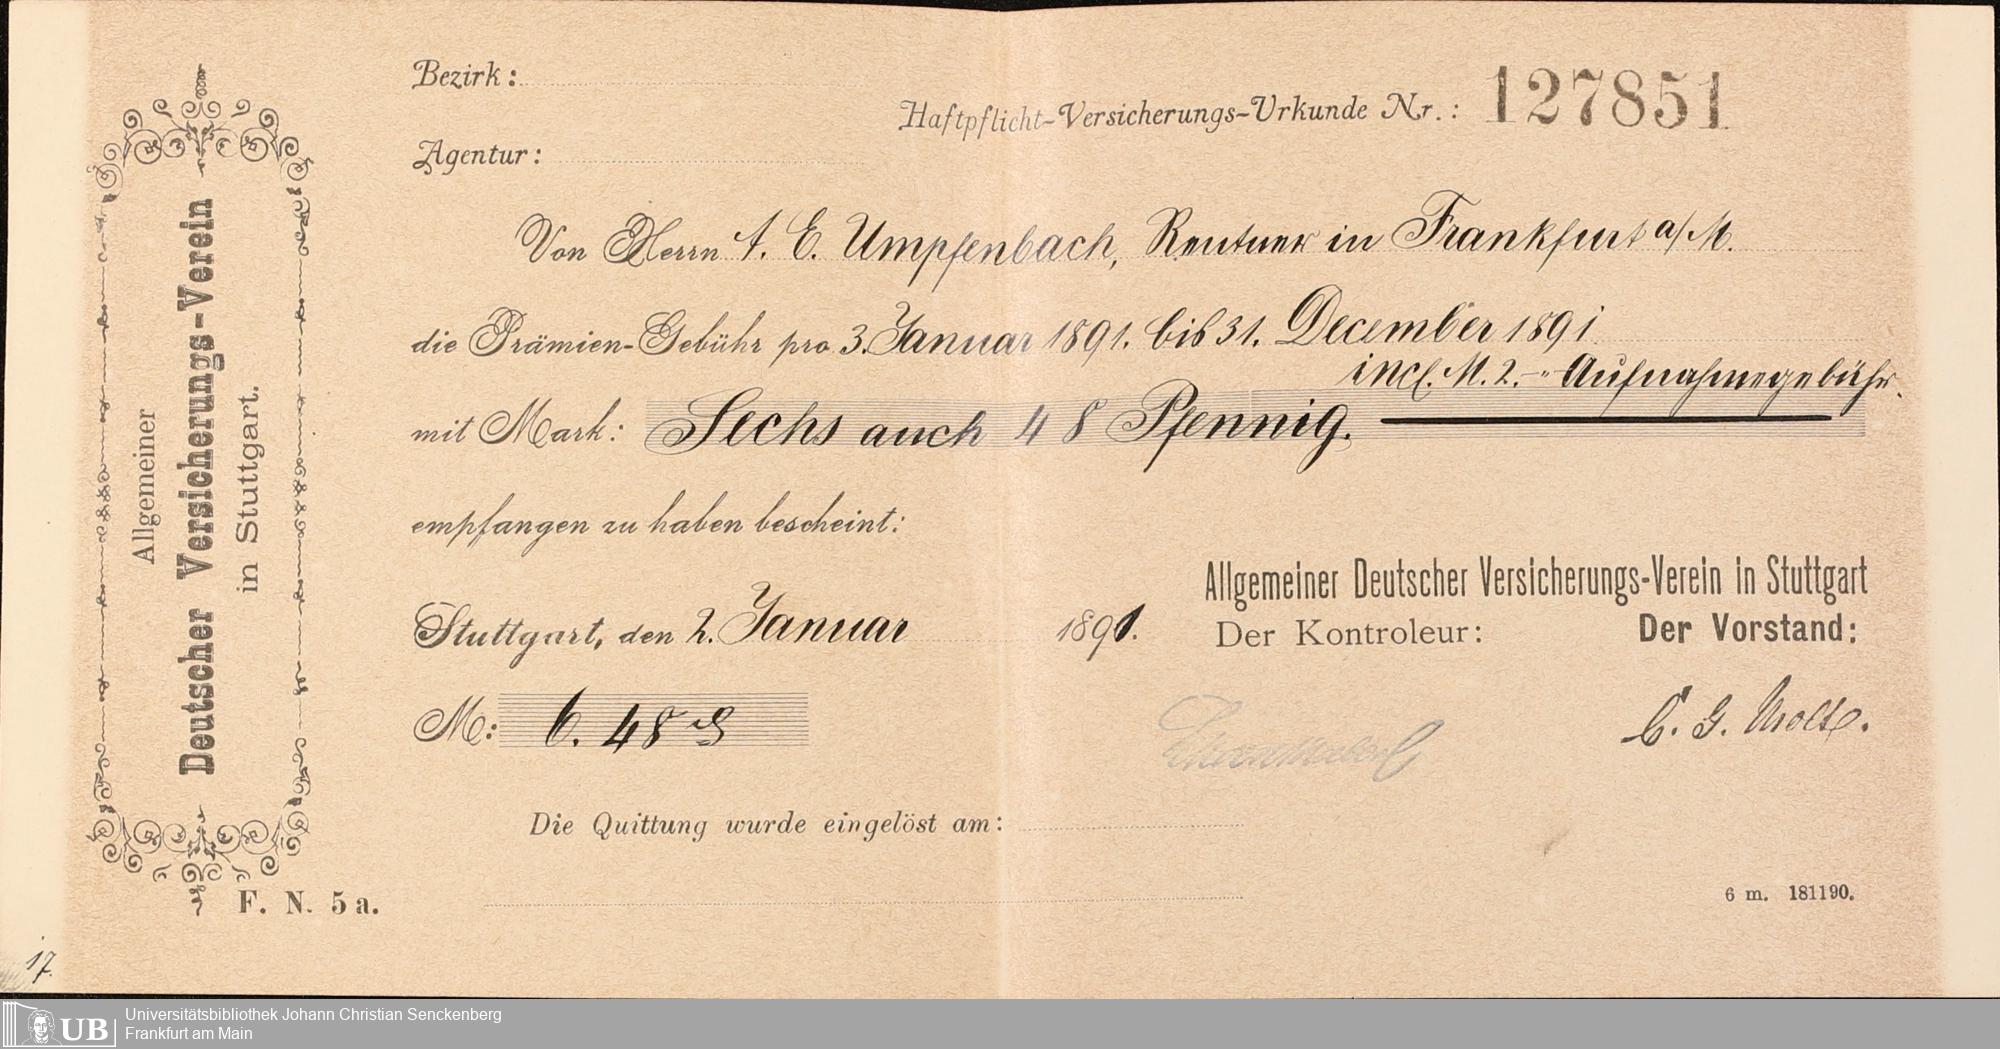 Allgemeiner
Deutscher Versicherungs-Verein
in Stuttgart.
Bezirk:
Haftpflicht-Versicherungs-Urkunde Nr.: 127851
Agentur:
Von Herrn A. E. Umpfenbach, Rentner in Frankfurt a/M.
die Prämien-Gebühr pro 3. Januar 1891. bis 31. December 1891
incl. M. 2.-" Aufnahmegebühr.
mit Mark: Sechs auch 48 Pfennig.
empfangen zu haben bescheint:
Allgemeiner Deutscher Versicherungs-Verein in Stuttgart
Stuttgart, den 2. Januar 1891.
Der Kontroleur: Der Vorstand:
M: 6. 48 ₰
C. G. Molt.
Die Quittung wurde eingelöst am:
F. N. 5 a.
6 m. 181190.
17.
UB
Universitätsbibliothek Johann Christian Senckenberg
Frankfurt am Main